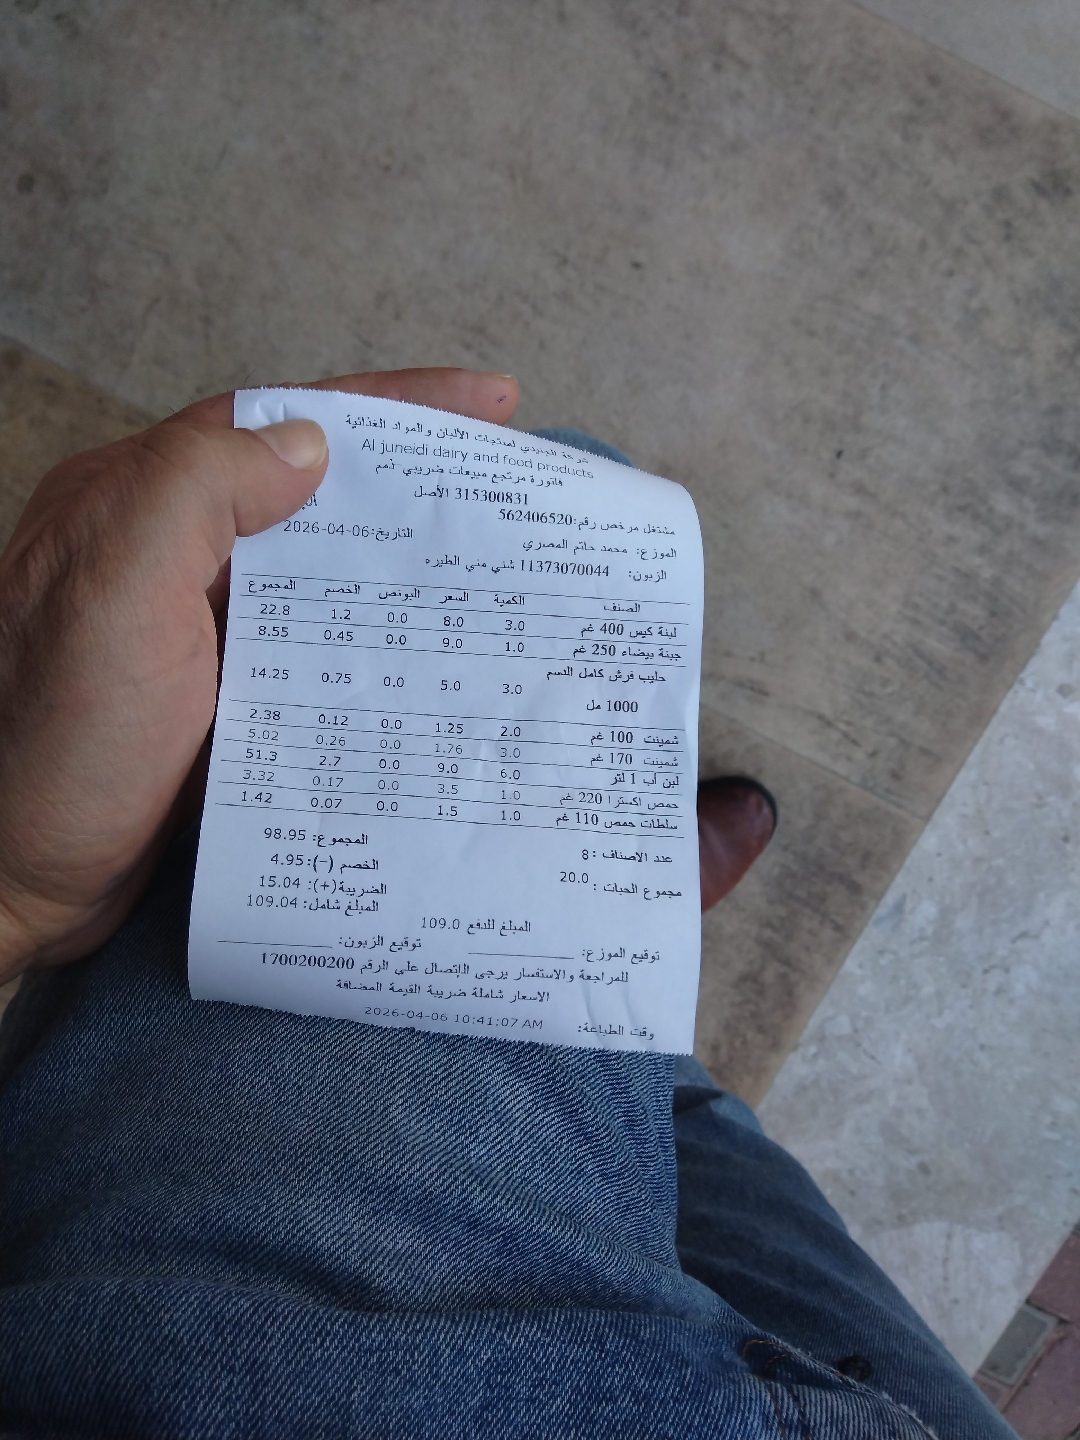 شركة الجنيدي لمنتجات الألبان والمواد الغذائية
Al juneidi dairy and food products
فاتورة مرتجع مبيعات ضريبي ذمم
315300831 الأصل
مشتغل مرخص رقم:562406520
الموزع: محمد حاتم المصري
التاريخ:2026-04-06
الزبون: 11373070044 شني مني الطيره
الصنف الكمية السعر البونص الخصم المجموع
لبنة كيس 400 غم 3.0 8.0 0.0 1.2 22.8
جبنة بيضاء 250 غم 1.0 9.0 0.0 0.45 8.55
حليب فرش كامل الدسم
1000 مل 3.0 5.0 0.0 0.75 14.25
شمينت 100 غم 2.0 1.25 0.0 0.12 2.38
شمينت 170 غم 3.0 1.76 0.0 0.26 5.02
لبن أب 1 لتر 6.0 9.0 0.0 2.7 51.3
حمص اكسترا 220 غم 1.0 3.5 0.0 0.17 3.32
سلطات حمص 110 غم 1.0 1.5 0.0 0.07 1.42
عدد الاصناف :8 المجموع: 98.95
مجموع الحبات : 20.0 الخصم (-):4.95
الضريبة(+): 15.04
المبلغ شامل: 109.04
المبلغ للدفع 109.0
توقيع الموزع: توقيع الزبون:
للمراجعة والاستفسار يرجى الإتصال على الرقم 1700200200
الاسعار شاملة ضريبة القيمة المضافة
وقت الطباعة: 2026-04-06 10:41:07 AM